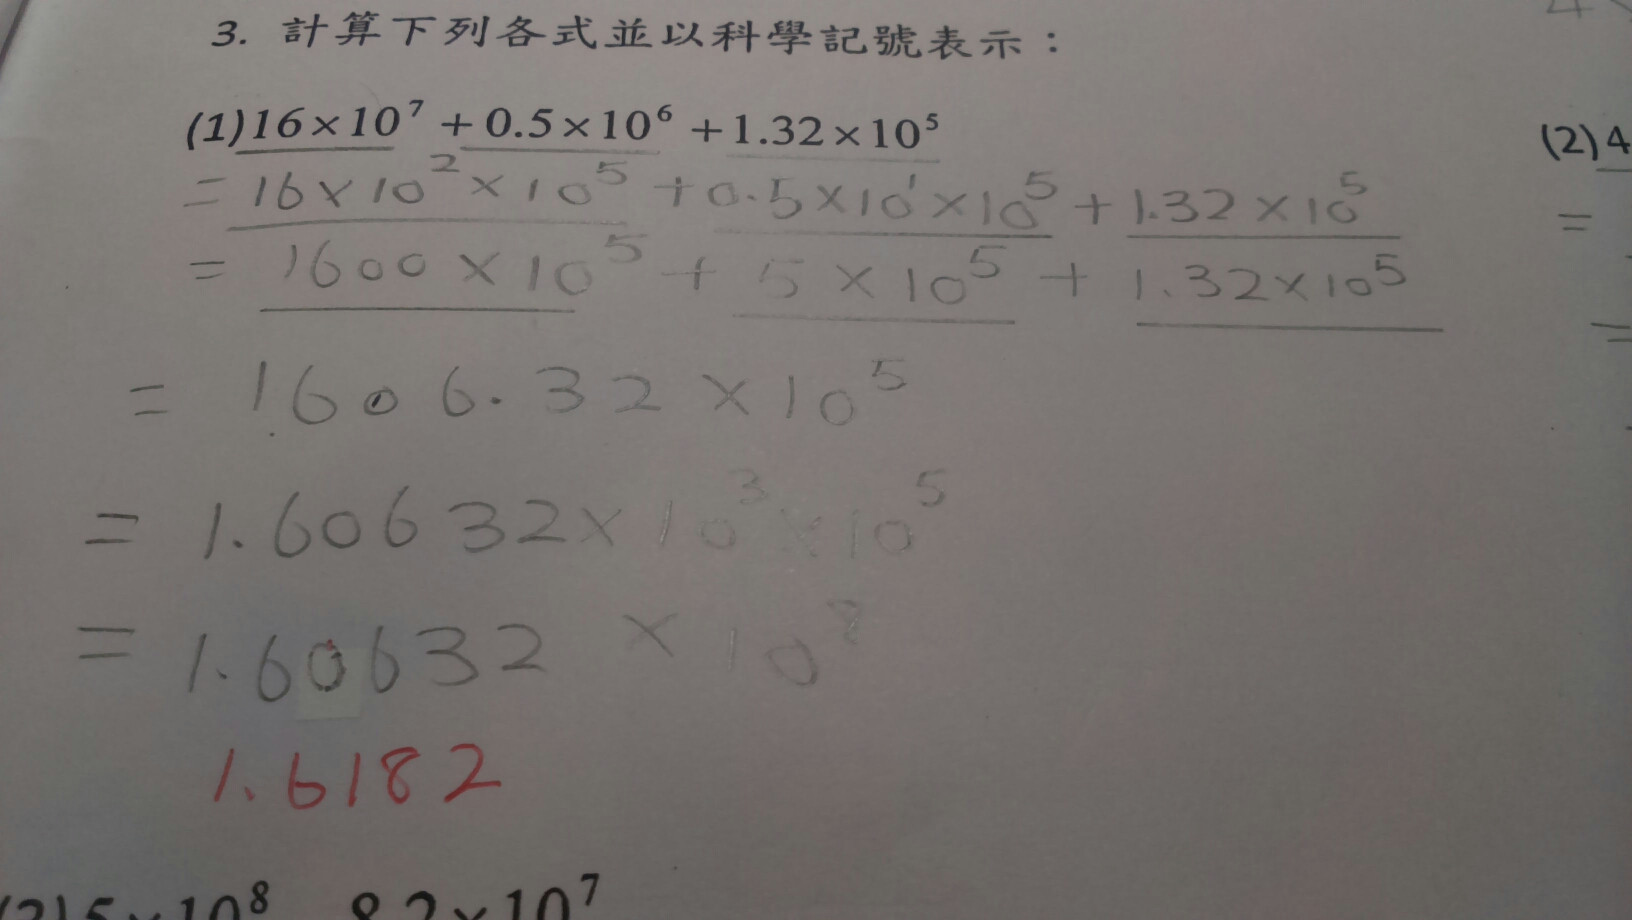 3. 計算下列各式並以科學記號表示：
(1)16×10⁷ +0.5×10⁶ +1.32×10⁵
(2)4
=16×10²×10⁵+0.5×10¹×10⁵+1.32×10⁵
=
= 1600×10⁵+5×10⁵+1.32×10⁵
=
= 1606.32×10⁵
= 1.60632×10³×10⁵
= 1.60632×10⁸
1.6182
×10⁸ 8.2×10⁷